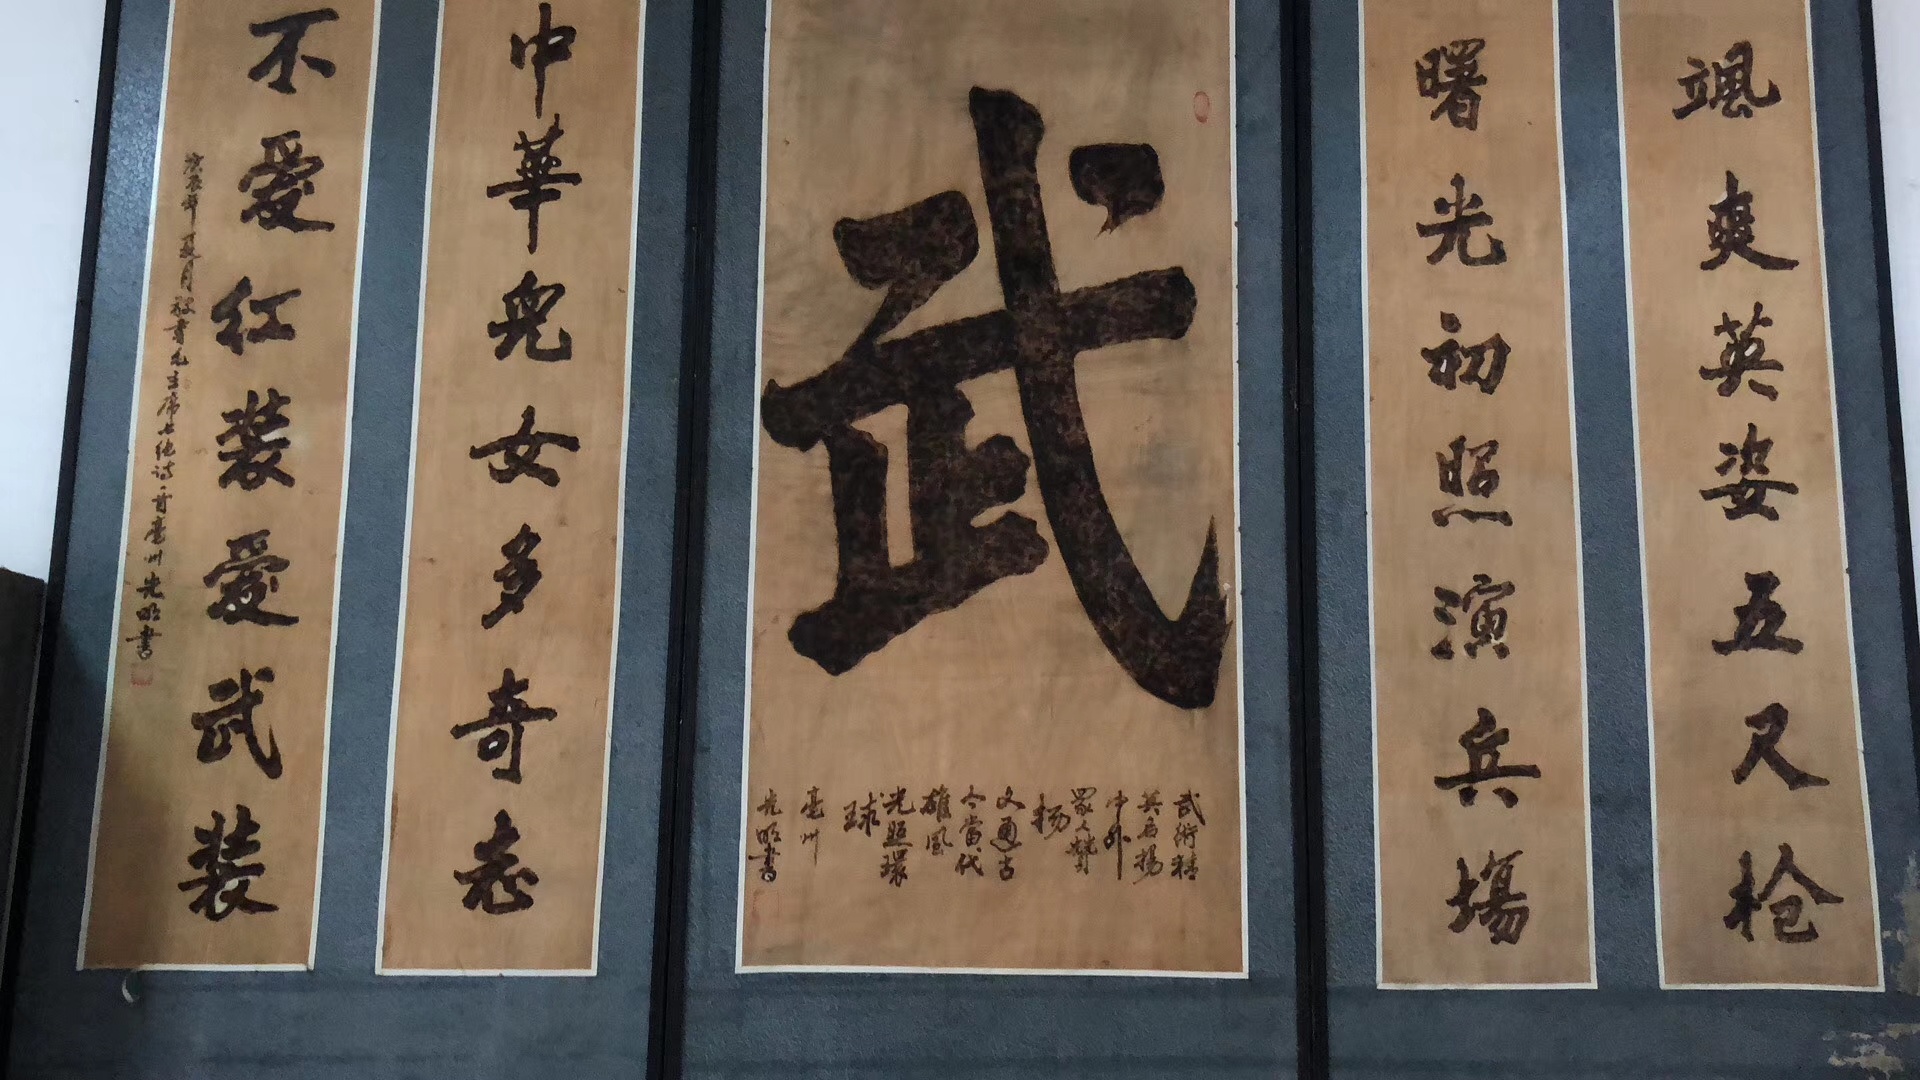 颯爽英姿五尺枪
曙光初照演兵場
武
武術精
英名揚
中外
眾人贊
扬
文通古
今當代
雄風
光照環
球
亳州
光明書
中華兒女多奇志
不愛紅裝愛武裝
庚辰年夏月敬書毛主席七绝诗一首亳州光明書